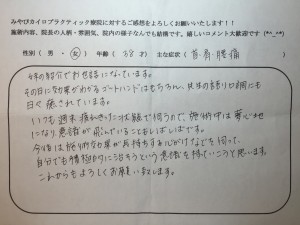 みやびカイロプラクティック療院に対するご感想をよろしくお願いいたします!!
施術内容、院長の人柄・雰囲気、院内の様子なんでも結構です。嬉しいコメント大歓迎です (*^_^*)
性別( 男 ・ 女 ) 年齢( 38 才) 主な症状( 首肩腰痛 )
でお世話になっています。
その日に効果がわかるゴッドハンドはもちろん、先生の語り口調にも
日々癒されています。
いつも週末 疲れきった状態で伺うので、施術中は夢心地
になり意識が飛んでいることもしばしばです。
今後は施術的な効果が長持ちする心がけなどを伺って、
自分でも積極的に治そうという意識を持っていこうと思います。
これからもよろしくお願い致します。